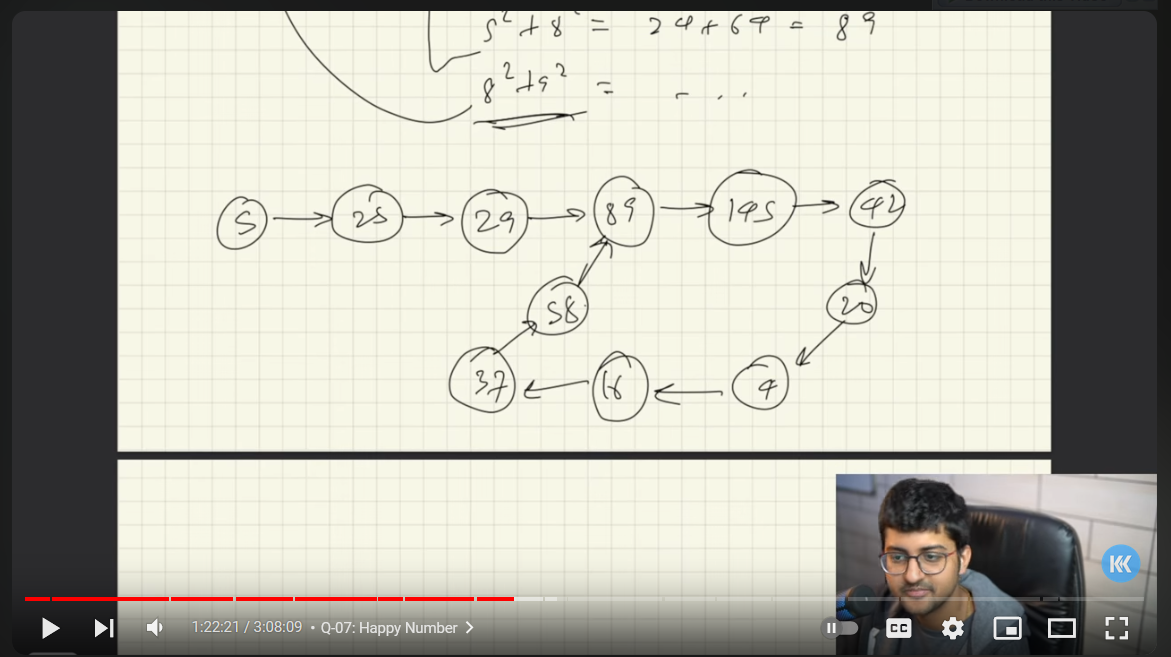 5² + 8² = 24 + 64 = 89
8² + 9² = - . .
5 → 25 → 29 → 89 → 145 → 42
58
20
37 ← 16 ← 4
1:22:21 / 3:08:09 • Q-07: Happy Number
CC